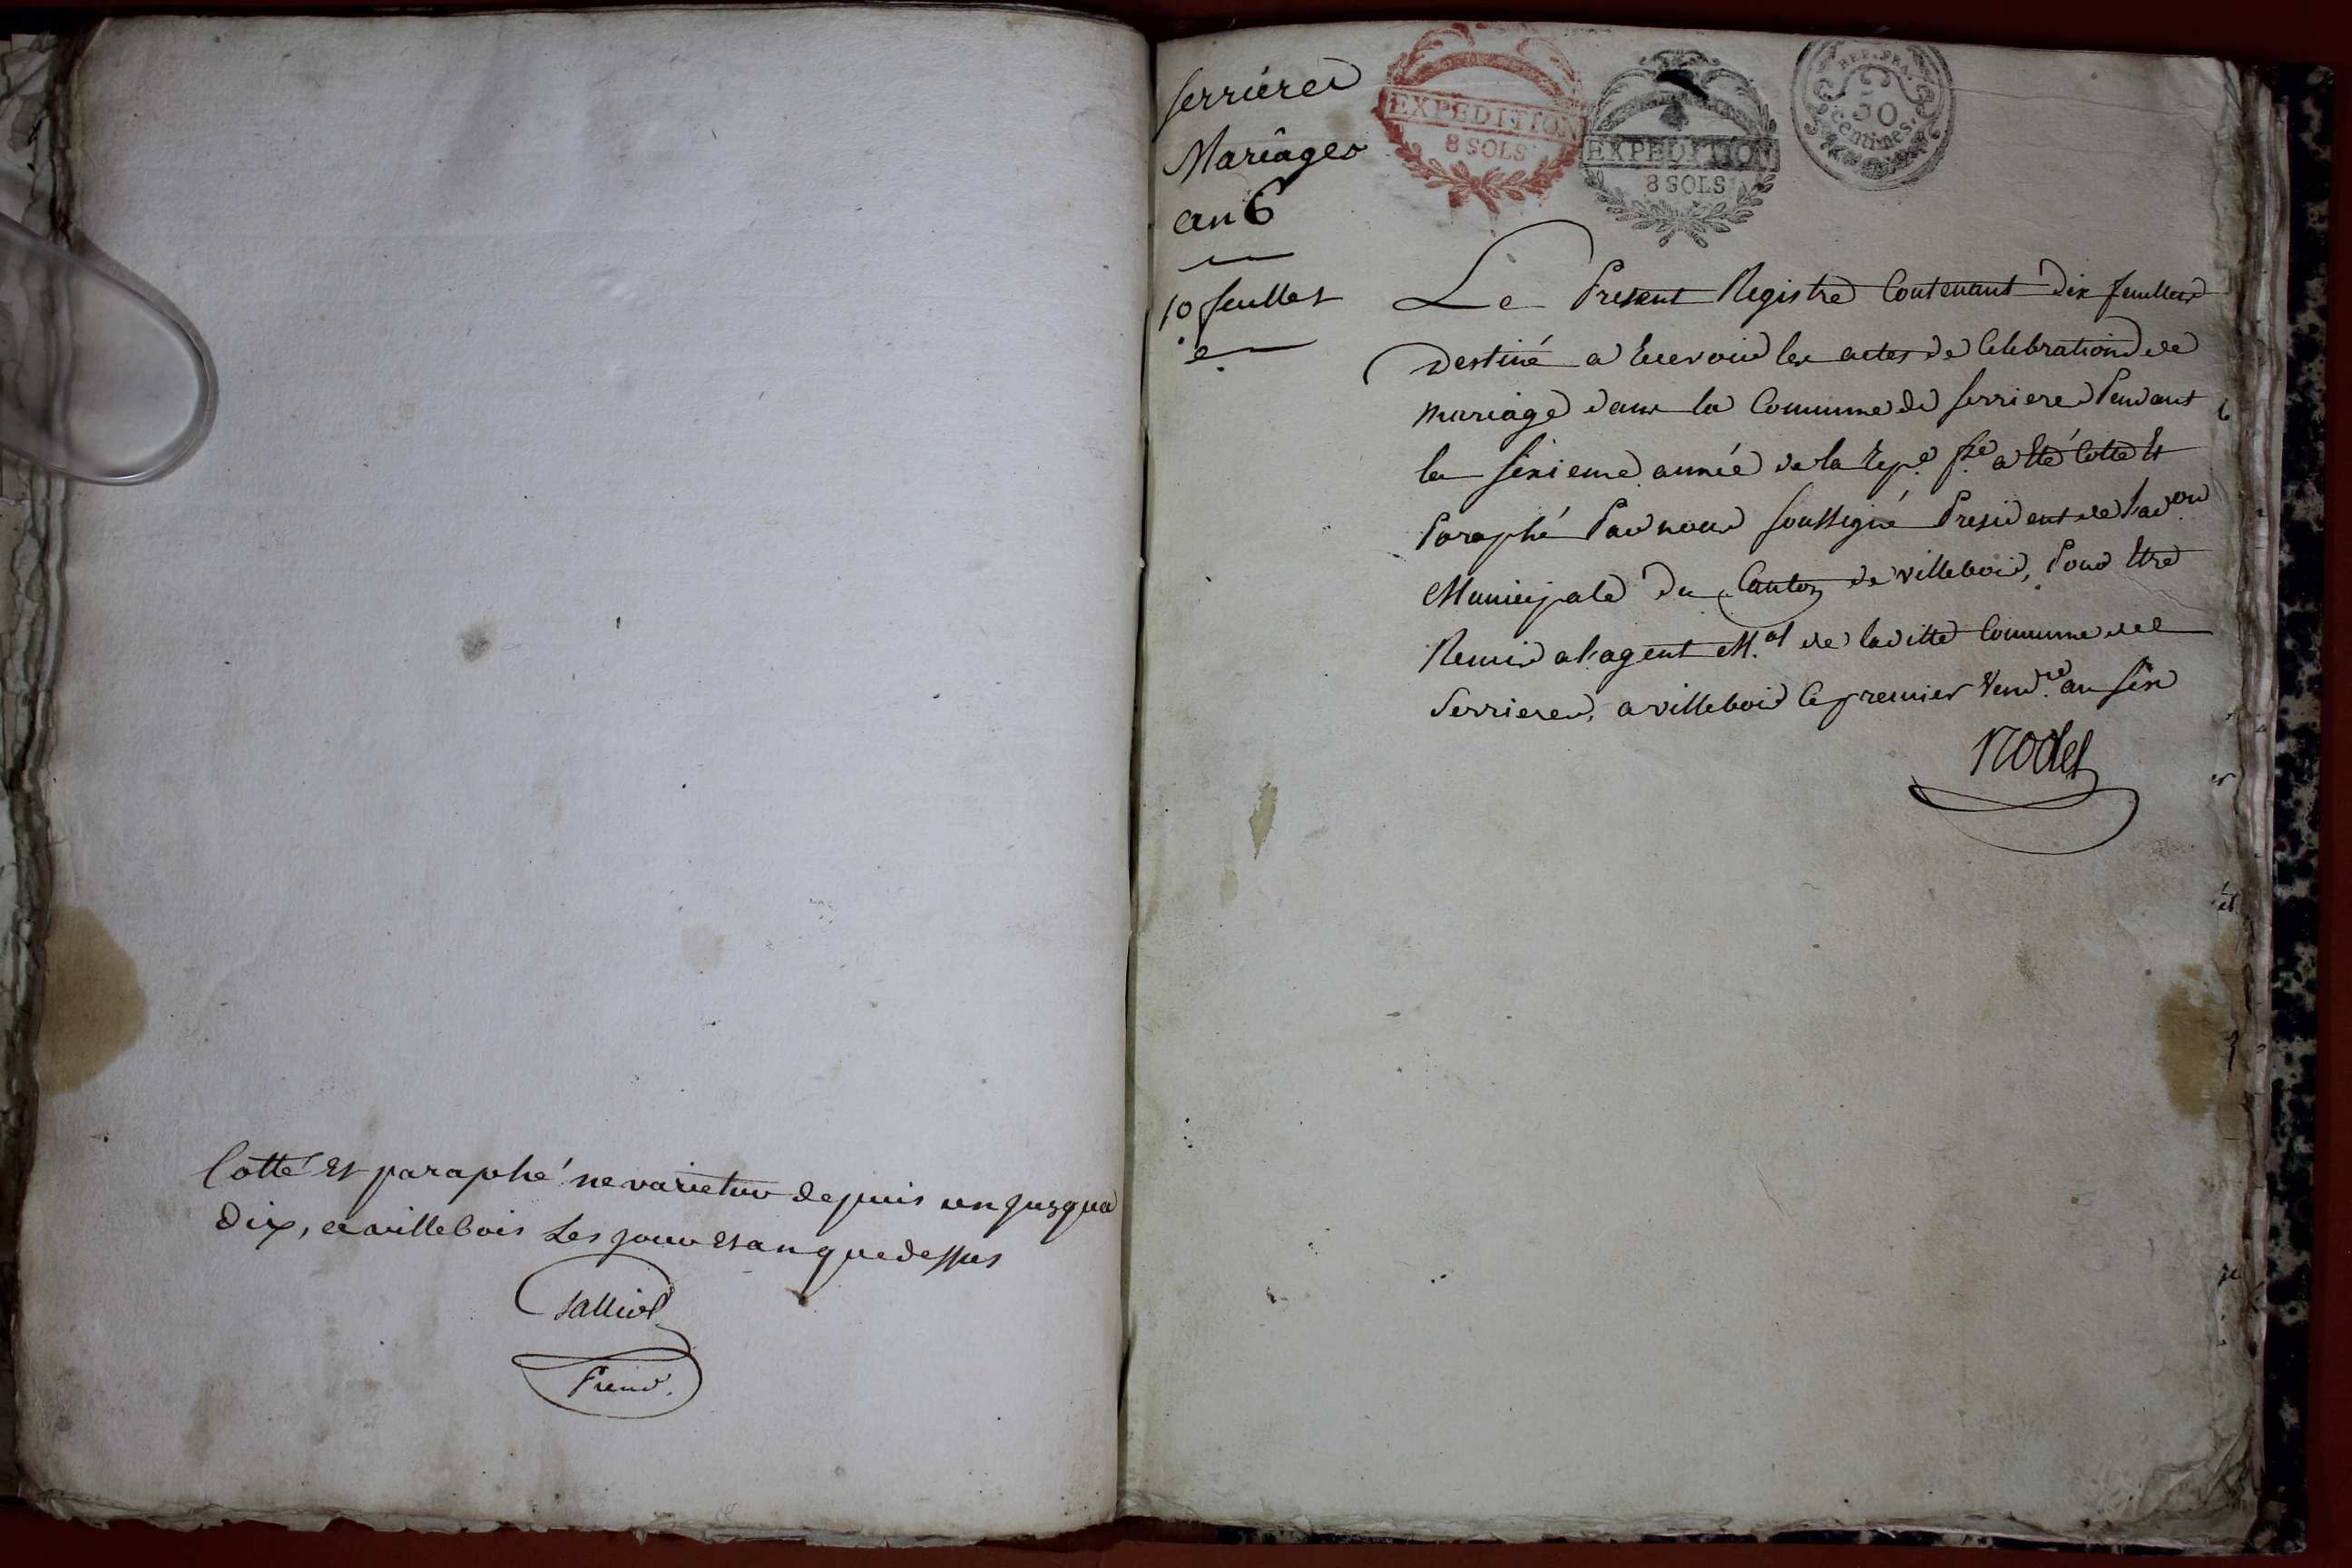 Cotté Et paraphé ne varietur depuis un jusqua
dix, a villebois Les jour et an que dessus
Presid.
Serrieres
Mariâges
an 6
10 feullet
EXPEDITION
8 SOLS
EXPEDITION
8 SOLS
REP. FRA.
50
centimes.
Le Present Registre Contenant dix feuillets
Destiné a Recevoir les actes de Celebration de
mariage dans la Commune de serrieres Pendant
la sixieme année de la Rep.e f.se a Eté Cotté Et
Paraphé Par nous soussigné President de l'ad.on
Municipale du Canton de villebois, Pour Etre
Remis a l'agent M.al de la ditte Commune de
Serrieres, a villebois le premier Vend.re an six
Nodet